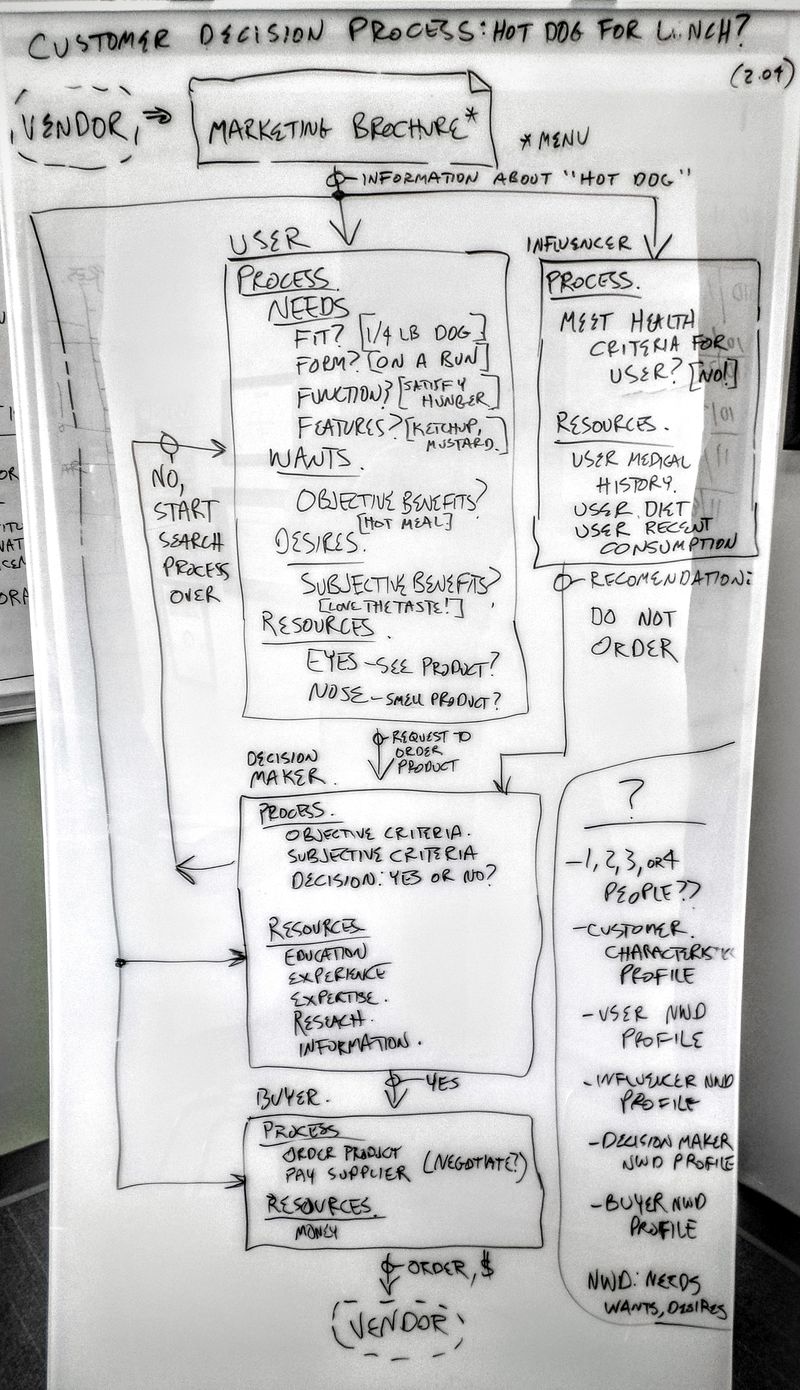 CUSTOMER DECISION PROCESS: HOT DOG FOR LUNCH?
(2.04)
VENDOR
MARKETING BROCHURE*
*MENU
INFORMATION ABOUT "HOT DOG"
USER
PROCESS.
NEEDS
FIT? [1/4 LB DOG]
FORM? [ON A BUN]
FUNCTION? [SATISFY
HUNGER]
FEATURES? [KETCHUP,
MUSTARD.]
WANTS.
OBJECTIVE BENEFITS?
[HOT MEAL]
DESIRES.
SUBJECTIVE BENEFITS?
[LOVE THE TASTE!]
RESOURCES.
EYES - SEE PRODUCT?
NOSE - SMELL PRODUCT?
INFLUENCER
PROCESS.
MEET HEALTH
CRITERIA FOR
USER? [NO!]
RESOURCES.
USER MEDICAL
HISTORY.
USER DIET
USER RECENT
CONSUMPTION
RECOMENDATION:
DO NOT
ORDER
NO,
START
SEARCH
PROCESS
OVER
REQUEST TO
ORDER
PRODUCT
DECISION
MAKER.
PROCESS.
OBJECTIVE CRITERIA.
SUBJECTIVE CRITERIA
DECISION: YES OR NO?
RESOURCES
EDUCATION
EXPERIENCE
EXPERTISE.
RESEACH.
INFORMATION.
YES
BUYER.
PROCESS
ORDER PRODUCT
PAY SUPPLIER (NEGOTIATE?)
RESOURCES.
MONEY
ORDER, $
VENDOR
?
-1, 2, 3, OR 4
PEOPLE??
-CUSTOMER.
CHARACTERISTIC
PROFILE
-USER NWD
PROFILE
-INFLUENCER NWD
PROFILE
-DECISION MAKER
NWD PROFILE
-BUYER NWD
PROFILE
NWD: NEEDS
WANTS, DESIRES